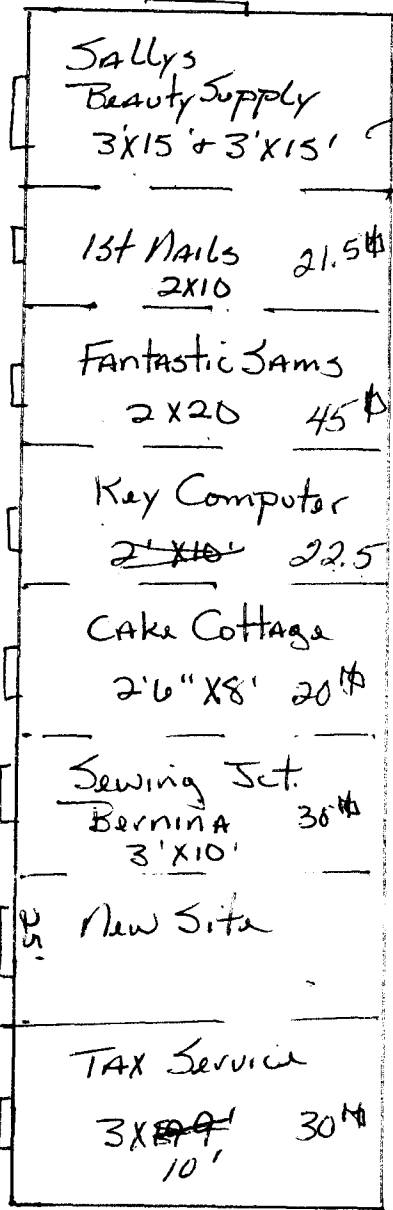 SALLYs
BeAuty Supply
3'X15' & 3'X15'
1st NAiLs 21.5
2X10
FANtAstic SAms
2 X 20 45
Key Computer
2' X10' 22.5
CAke CottAge
2'6" X8' 20
Sewing Jct.
BerninA 30
3'X10'
25' New Site
TAX Service
3X 9' 30
10'